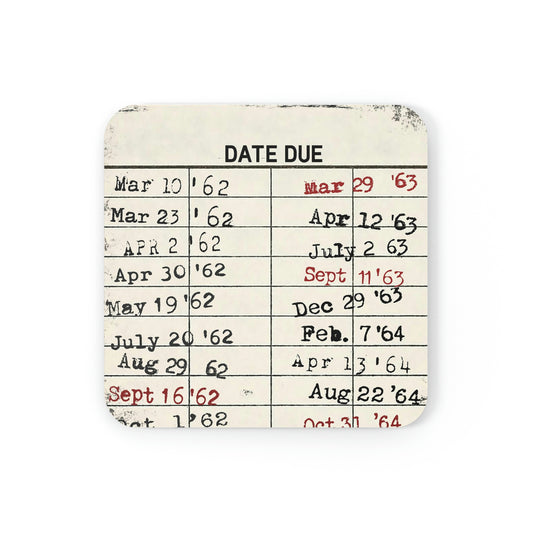 DATE DUE
Mar 10 '62
Mar 23 '62
APR 2 '62
Apr 30 '62
May 19 '62
July 20 '62
Aug 29 62
Sept 16 '62
Oct 1 '62
Mar 29 '63
Apr 12 '63
July 2 63
Sept 11 '63
Dec 29 '63
Feb. 7 '64
Apr 13 '64
Aug 22 '64
Oct 31 '64